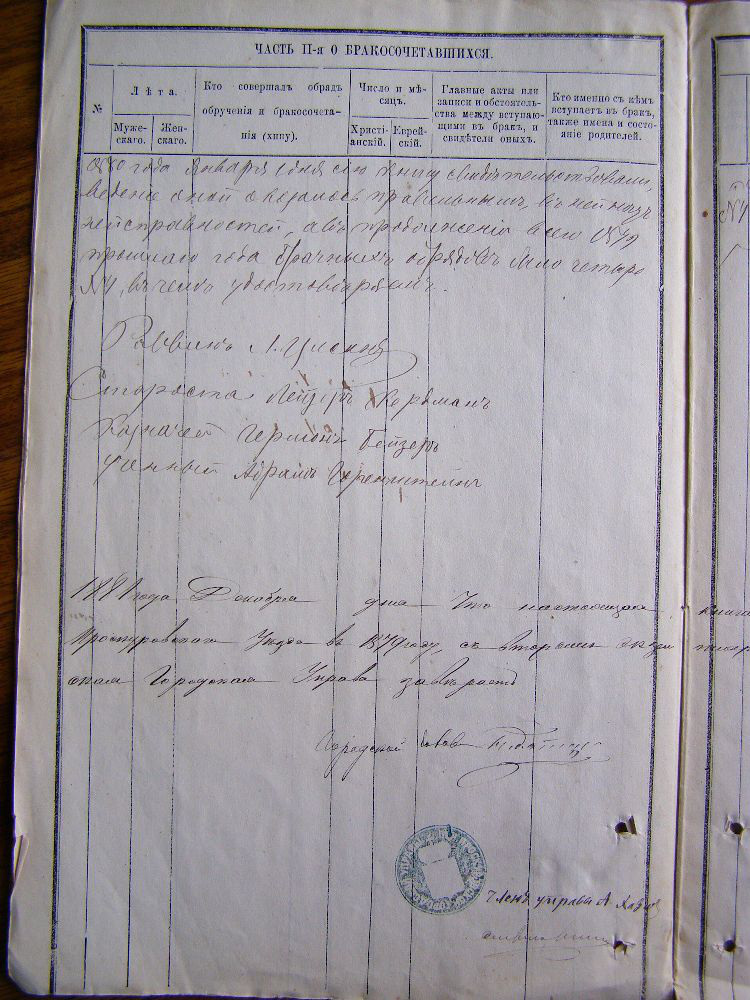 ЧАСТЬ II-я О БРАКОСОЧЕТАВШИХСЯ.
№
Лѣта.
Муже-
скаго.
Жен-
скаго.
Кто совершалъ обрядъ
обрученія и бракосочета-
нія (хипу).
Число и мѣ-
сяцъ.
Христі-
анскій.
Еврей-
скій.
Главные акты или
записки и обстоятель-
ства между вступаю-
щими въ бракъ, и
свидѣтели оныхъ.
Кто именно съ кѣмъ
вступаетъ въ бракъ,
также имена и состо-
яніе родителей.
года Января дня сію книгу свидѣтельствовали,
веденіе оной оказалось правильнымъ, въ ней нѣтъ
неисправностей, а въ продолженіи всего 1879
прошлаго года брачныхъ обрядовъ было четыре
№4, въ чемъ удостовѣряемъ.
Раввинъ Л.
Староста Лейзеръ
Казначей Германъ Бейзеръ
Ученый Абрамъ
1881 года Декабря дня Что настоящая книга
Проскуровскаго Уѣзда въ 1879 году, съ вторымъ
Городская Управа
Городской Голова
Членъ управы А.
№4